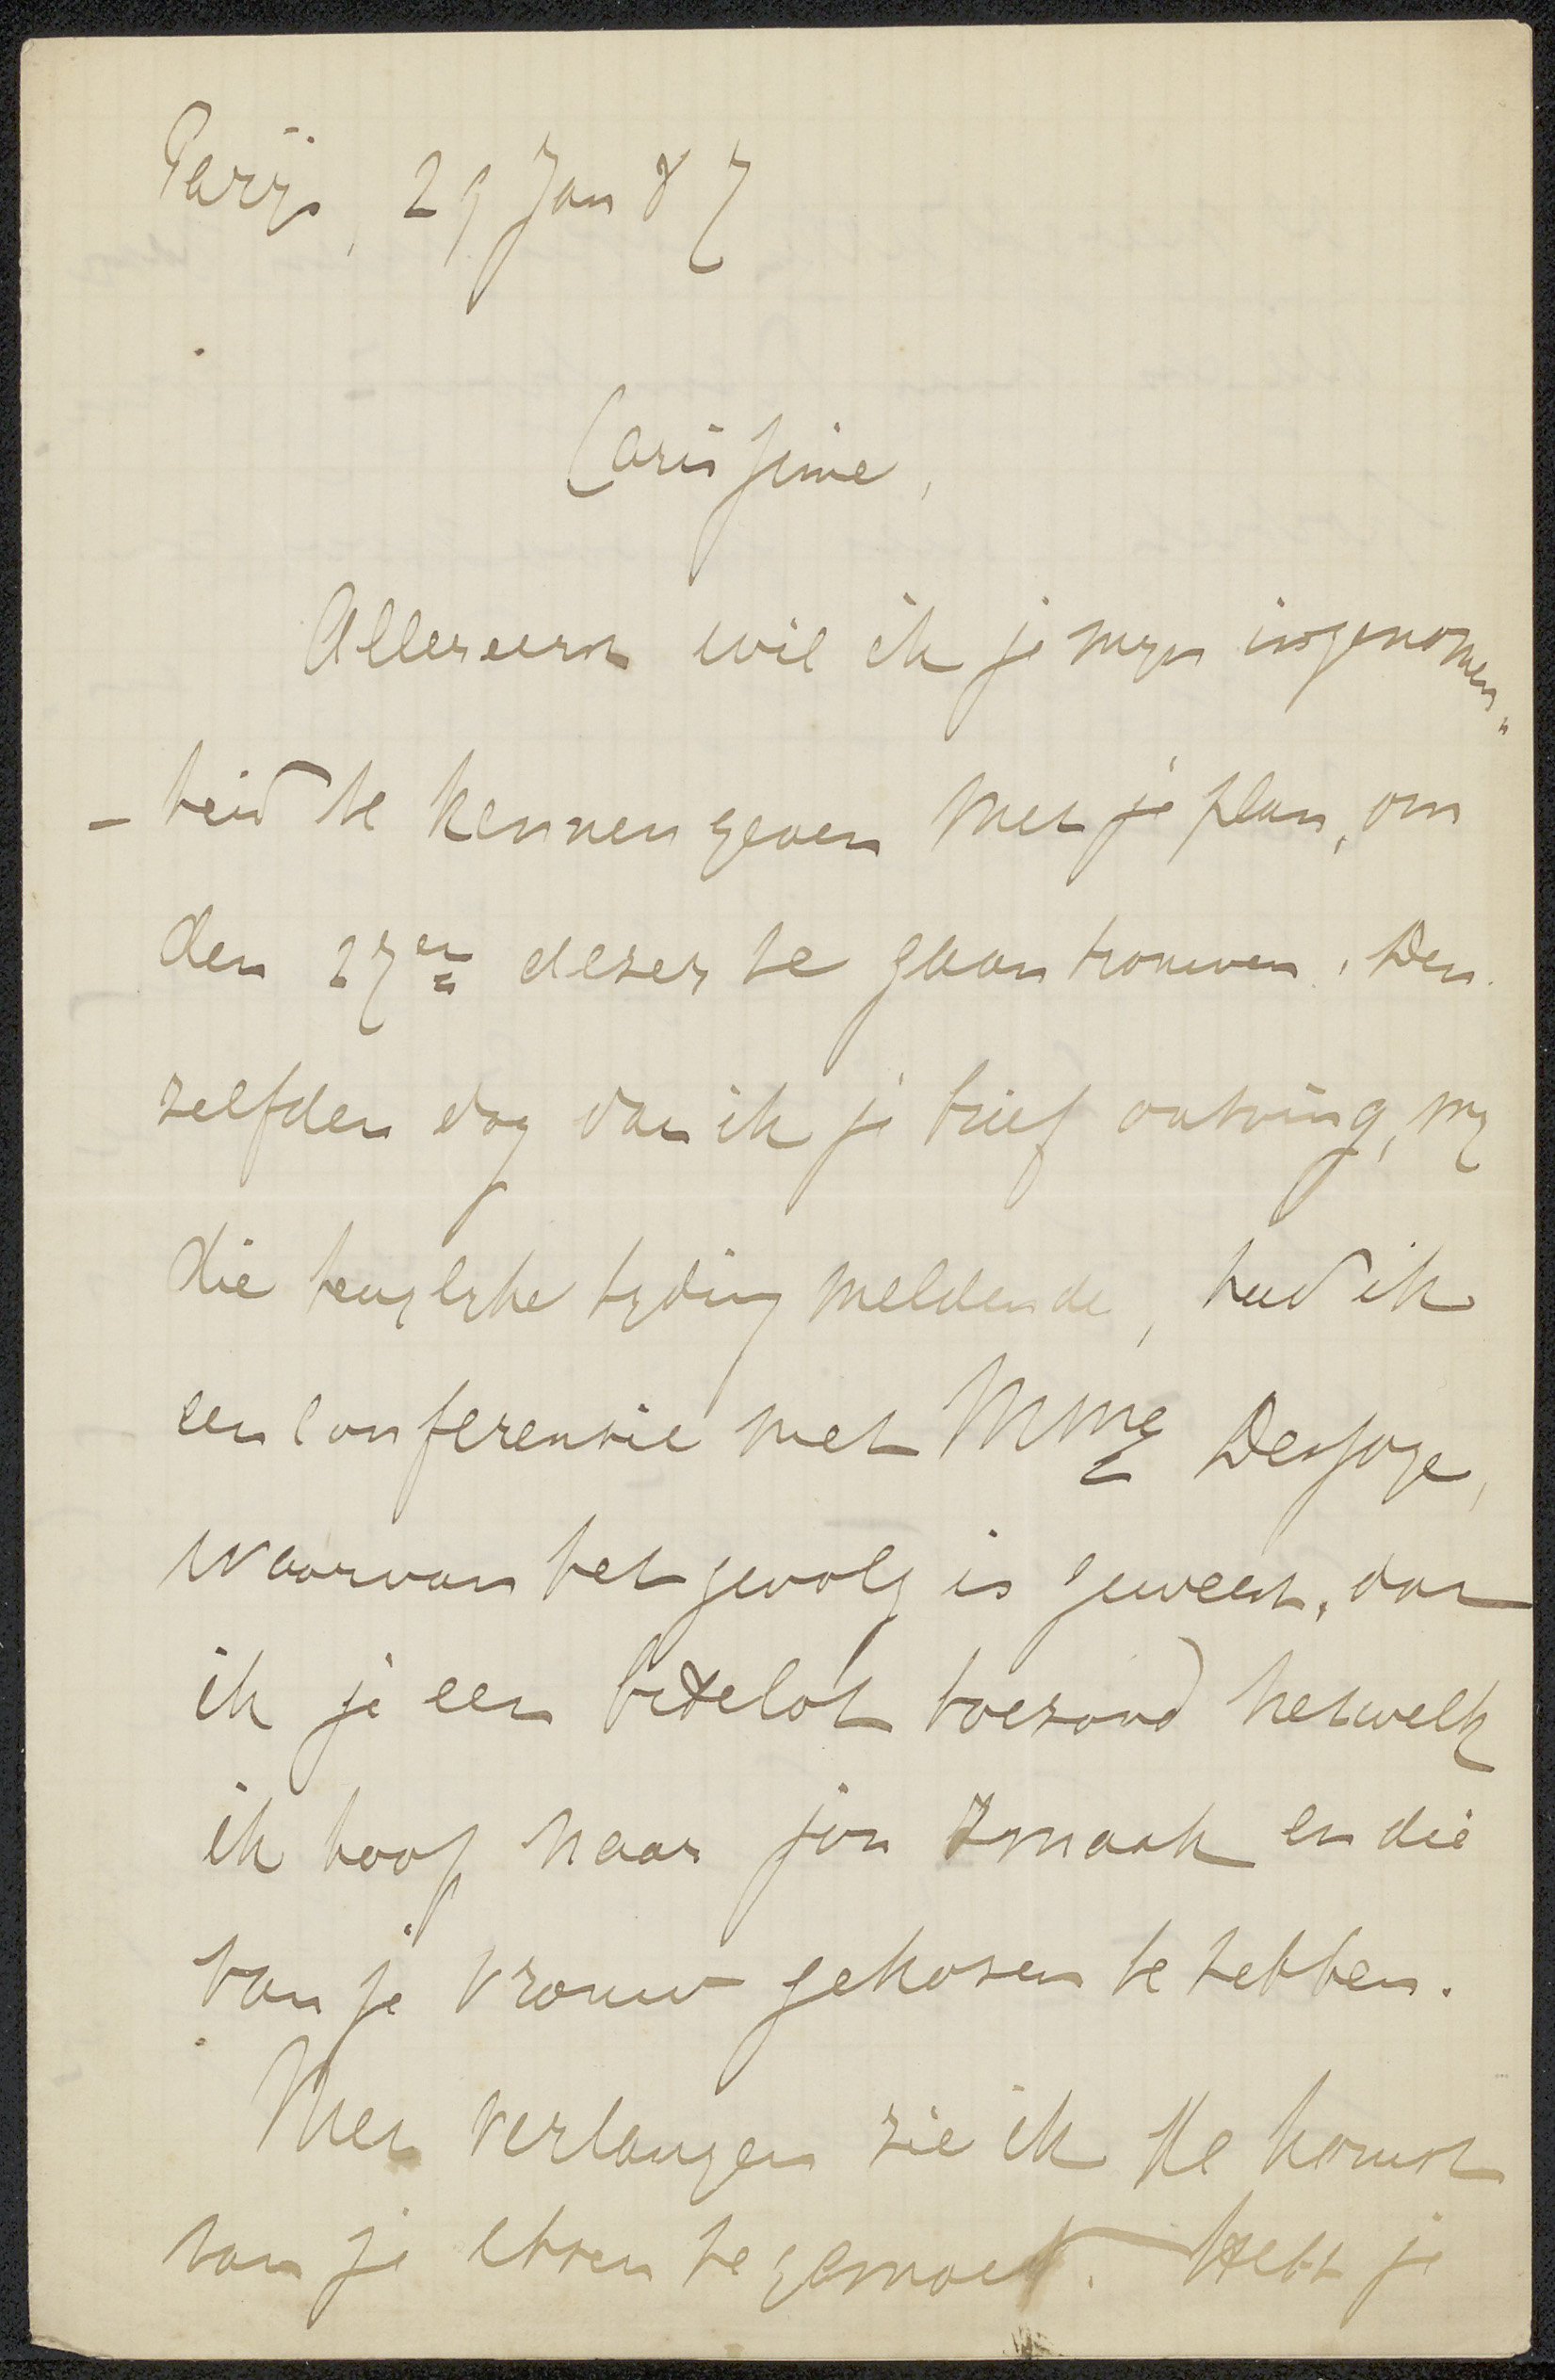 Parijs, 29 Jan 87
Carissime,
Allereerst wil ik je mijn ingenomen-
-heid te kennen geven met je plan, om
den 27en dezer te gaan trouwen. Den
zelfden dag dat ik je brief ontving, mij
die heuglijke tijding meldende, had ik
een conferentie met Mme Desjoye,
waarvan het gevolg is geweest, dat
ik je een bibelot toezond hetwelk
ik hoop naar jou smaak en die
van je vrouw gekozen te hebben.
Met verlangen zie ik de komst
van je etsen te gemoet. Hebt je